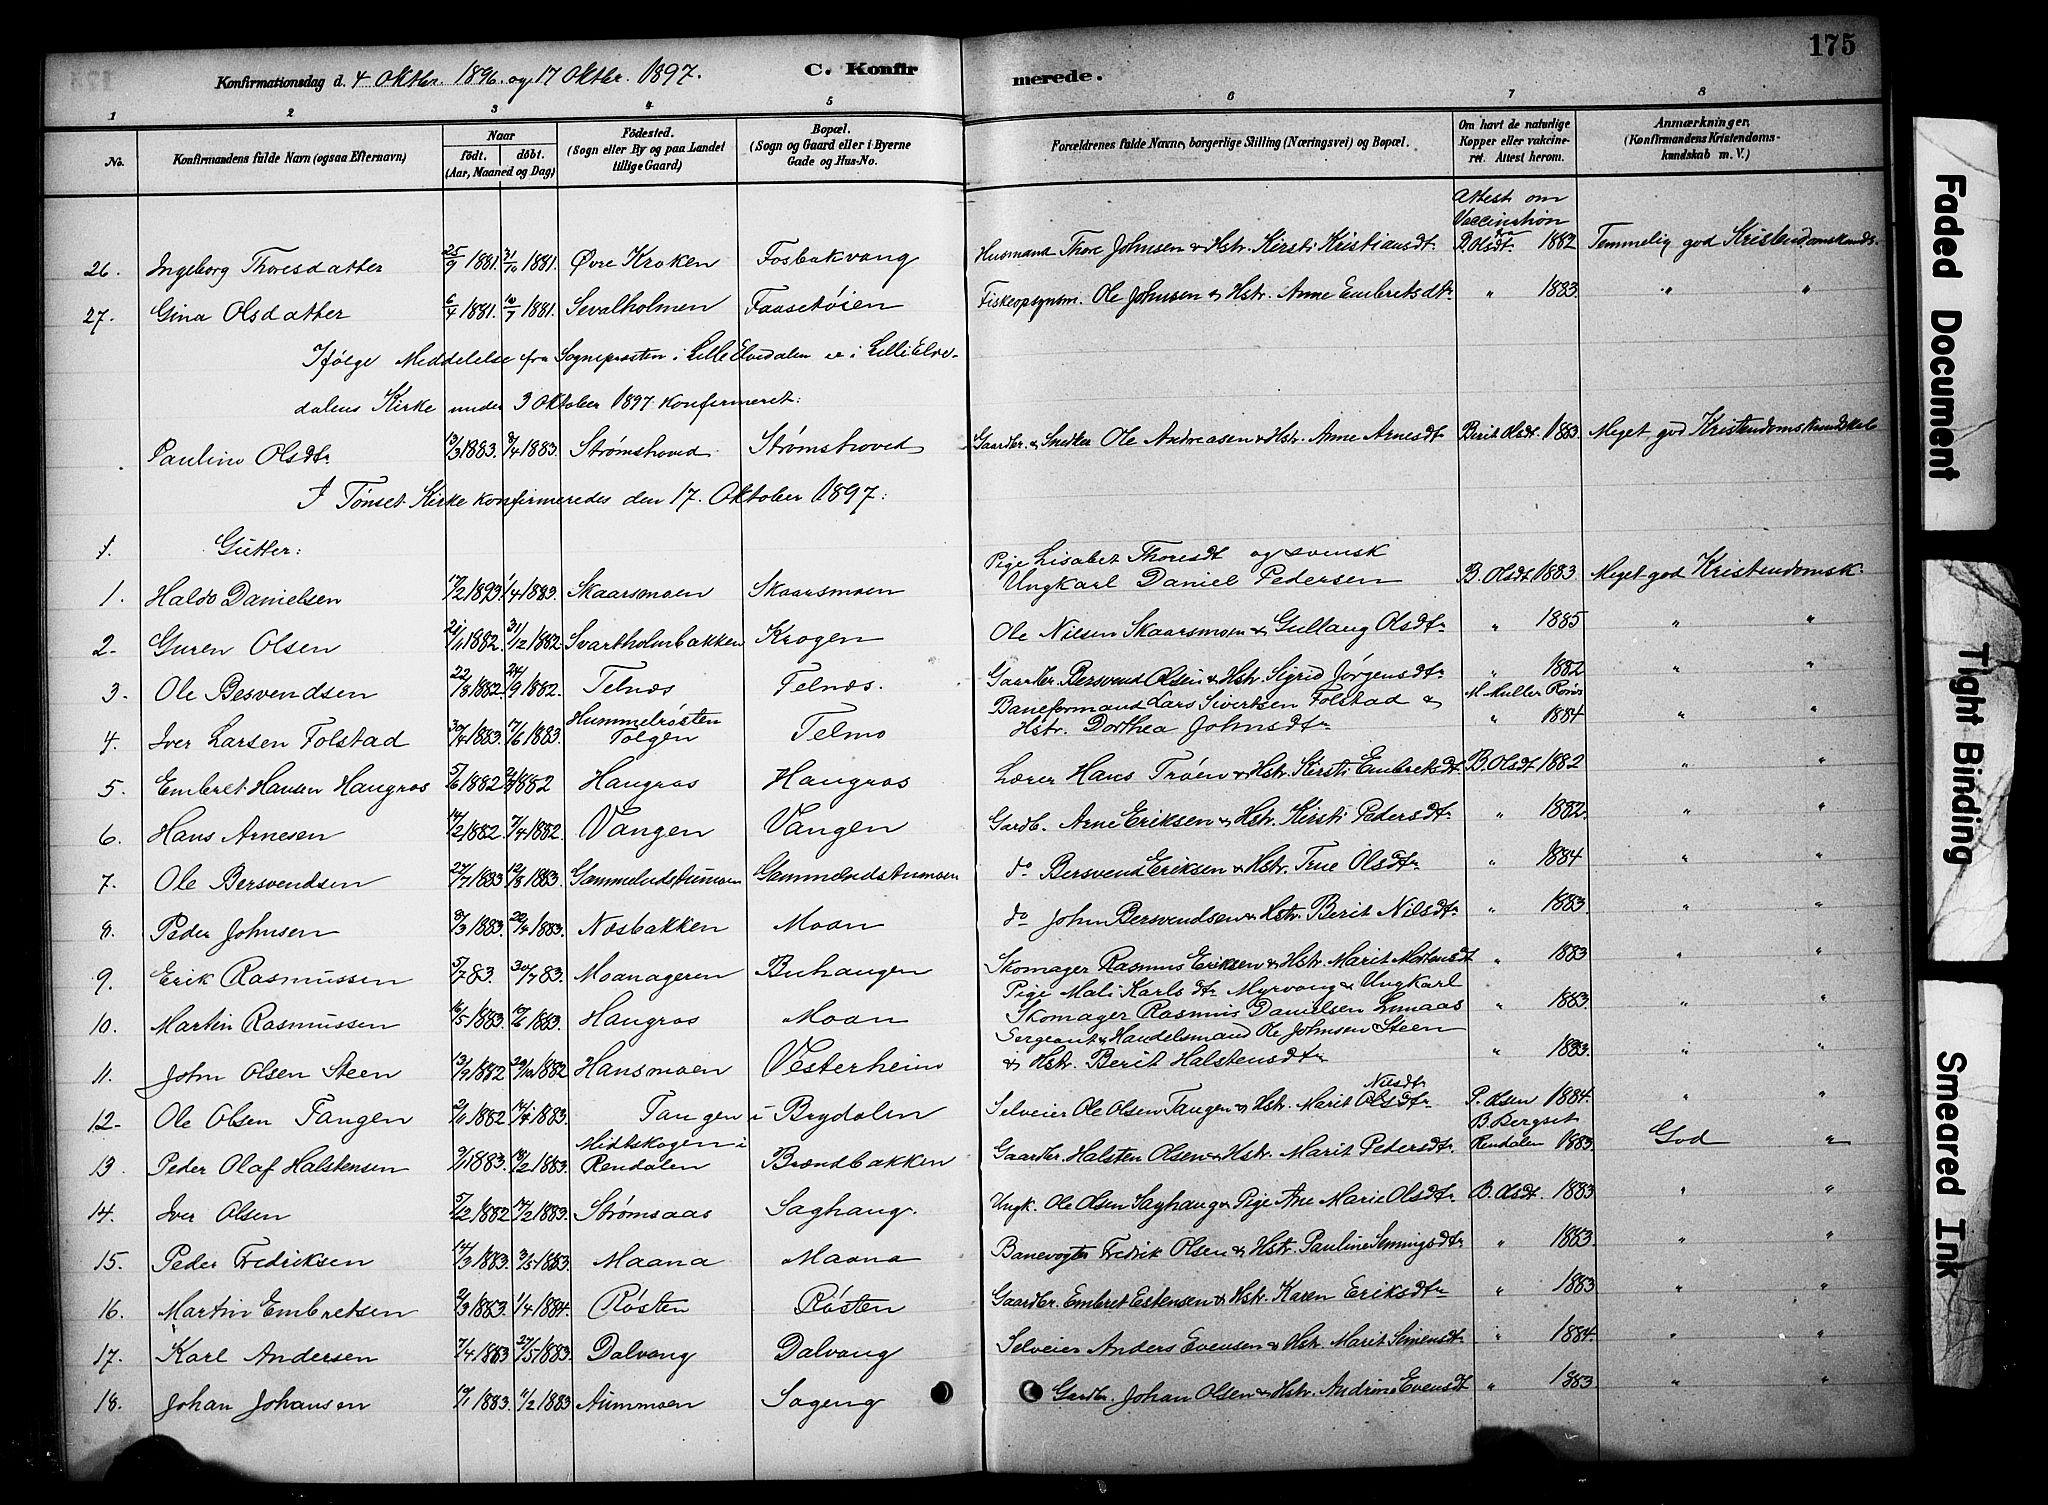 175
Konfirmationsdag d. 4 Oktbr. 1896. og 17 Oktbr. 1897. C. Konfirmerede.
1 2 3 4 5 6 7 8
No. Konfirmandens fulde Navn (ogsaa Efternavn) Naar født. døbt. (Aar, Maaned og Dag) Fødested. (Sogn eller By og paa Landet tillige Gaard) Bopæl. (Sogn og Gaard eller i Byerne Gade og Hus-No. Forældrenes fulde Navne, borgerlige Stilling (Næringsvei) og Bopæl. Om havt de naturlige Kopper eller vakcineret. Attest herom. Anmærkninger. (Konfirmandens Kristendomskundskab m. V.)
Attest om
Vaccination
26. Ingeborg Thoresdatter 25/9 1881. 31/10 1881. Øvre Kroken Fosbakvang Husmand Thore Johnsen & Hstr. Kirsti Kristiansdt. B. Olsdt. 1882 Temmelig god Kristendomskunds.
27. Gina Olsdatter 6/4 1881. 10/7 1881. Sevalholmen Faasetøien Fiskeopsynsm. Ole Johnsen & Hstr. Anne Embretsdtr " 1883. " "
Ifølge Meddelelse fra Sogneprosten i Lille Elvedalen er i Lille Elve-
dalens Kirke under 3 Oktober 1897 konfirmeret:
Pauline Olsdtr 13/3 1883. 8/4 1883. Strømshoved Strømshoved Gaardbr. & Snedker Ole Andreasen & Hstr. Anne Arnesdtr Berit Olsdt. 1883. Meget god Kristendomskundskab
I Tønset Kirke konfirmeredes den 17. Oktober 1897:
1. Gutter:
Pige Lisabet Thoresdt og svensk
1. Haldo Danielsen 17/2 1893. 1/4 1883. Skaarsmoen Skaarsmoen Ungkarl Daniel Pedersen B. Olsdt 1883 Meget god Kristendomsk.
2. Guren Olsen 21/11 1882. 31/12 1882 Svartholmbakken Krogen Ole Nilsen Skaarsmoen & Gullaug Olsdtr " 1885 " "
3. Ole Besvendsen 22/8 1882. 24/9 1882. Telnæs Telnæs. Gaardbr. Bersvend Olsen & Hstr. Sigrid Jørgensdtr " 1882 " "
Hummelrøsten Baneformand Lars Sivertsen Folstad & M. Muller Røros
4. Iver Larsen Folstad 30/4 1883. 17/6 1883. Tolgen Telmo Hstr. Dorthea Johnsdtr " 1884 " "
5. Embret Hansen Hangras 5/6 1882 1882 Hangras Hangras Lærer Hans Trøen & Hstr. Kirsti Embretsdt. B. Olsdt 1882 " "
6. Hans Arnesen 14/2 1882. 7/4 1882. Vangen Vangen Gardb. Arne Eriksen & Hstr. Kirsti Pedersdtr " 1882. " "
7. Ole Bersvendsen 27/7 1883 12/8 1883. Gammeludstumoen Gammeludstumoen do Bersvend Eriksen & Hstr. True Olsdtr " 1884 " "
8. Peder Johnsen 3/3 1883. 22/4 1883. Næsbakken Moan do John Bersvendsen & Hstr. Berit Nilsdtr " 1883. " "
9. Erik Rasmussen 5/7 83. 30/7 83. Moanageren Buhaugen Skomager Rasmus Eriksen & Hstr. Marit Mortensdt " 1883 " "
Pige Mali Karlsdtr Myrvang & Ungkarl
10. Martin Rasmussen 16/5 1883. 10/6 1883. Hangras Moan Skomager Rasmus Danielsen Lunaas " 1883 " "
Sergeant & Handelsmand Ole Johnsen Steen
11. John Olsen Steen 13/9 1882 29/10 1882 Hansmoen Vesterheim & Hstr. Berit Halstensdtr " 1883. " "
12. Ole Olsen Tangen 2/11 1882 17/4 1883. Tangen i Brydalen Selveier Ole Olsen Tangen & Hstr. Marit Nilsdtr Olsdtr P. Olsen 1884. " "
Midtskogen i B. Bergset
13. Peder Olaf Halstensen 9/1 1883. 13/2 1883. Rendalen Brændbakken Gaardbr. Halsten Olsen & Hstr. Marit Pedersdtr Rendalen 1883. God "
14. Iver Olsen 5/2 1882 17/2 1883. Strømsaas Saghaug. Ungk. Ole Olsen Saghaug & Pige Ane Marie Olsdtr B. Olsdt. 1883 " "
15. Peder Fredriksen 14/3 1883. 3/5 1883. Maana Maana Banevogter Fredrik Olsen & Hstr. Pauline Semingsdtr " 1883. " "
16. Martin Embretsen 2/3 1883. 1/4 1884. Røsten Røsten Gaardbr. Embret Estensen & Hstr. Karen Eriksdtr " 1883 " "
17. Karl Andersen 7/4 1883 27/5 1883. Dalvang Dalvang Selveier Anders Evensen & Hstr. Marit Simensdtr " 1884. " "
18. Johan Johansen 19/1 1883. 11/2 1883 Aummoen Sageng Gardbr. Johan Olsen & Hstr. Andrine Evensdt " 1883 " "
Faded Document
Tight Binding
Smeared Ink